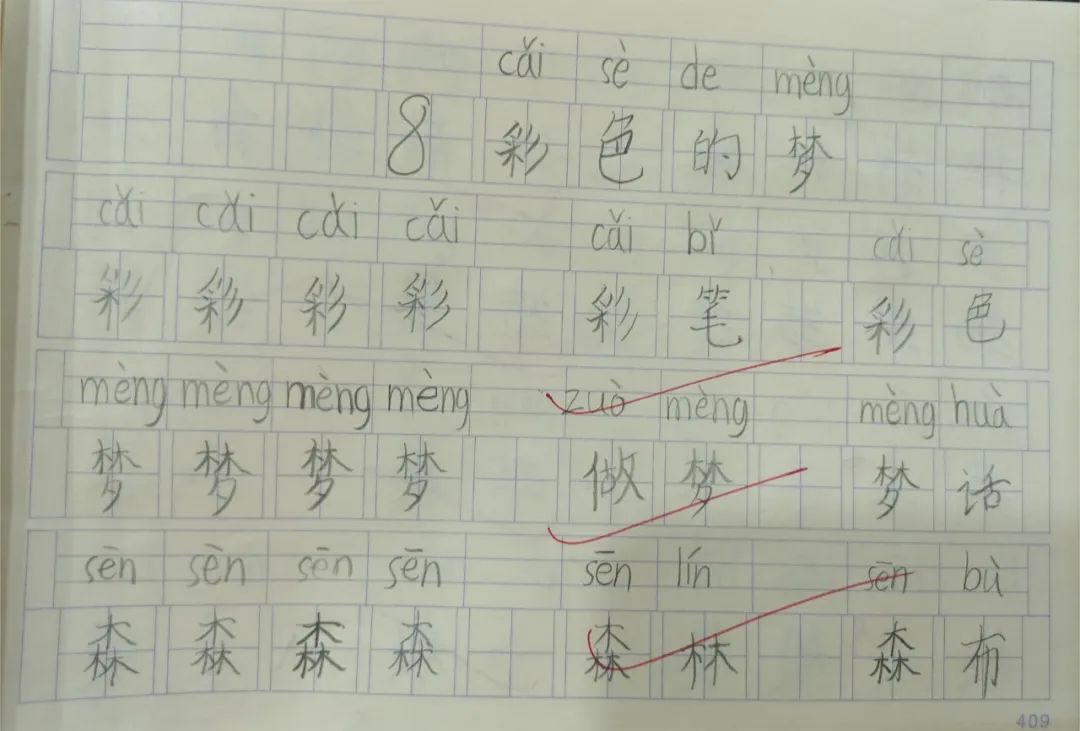 cǎi sè de mèng
8 彩色的梦
cǎi cǎi cǎi cǎi cǎi bǐ cǎi sè
彩 彩 彩 彩 彩笔 彩色
mèng mèng mèng mèng zuò mèng mèng huà
梦 梦 梦 梦 做梦 梦话
sēn sèn sēn sēn sēn lín sēn bù
森 森 森 森 森林 森布
409